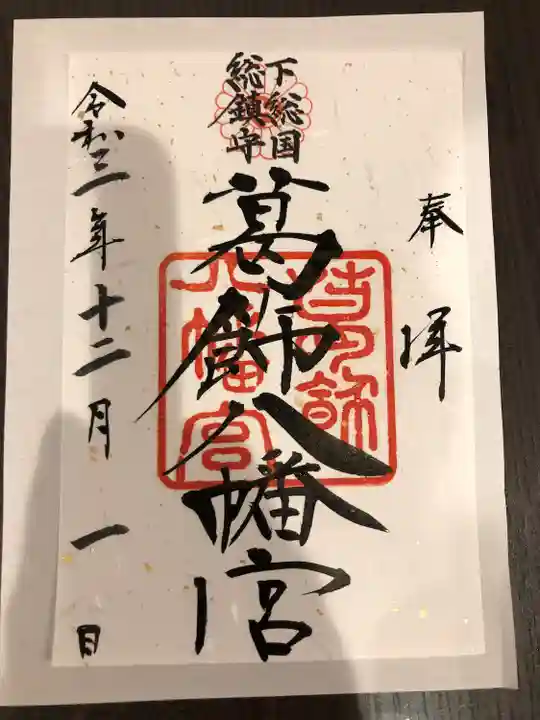 奉拝
下総国
総鎮守
葛飾八幡宮
令和三年十二月一日
葛飾
八幡宮